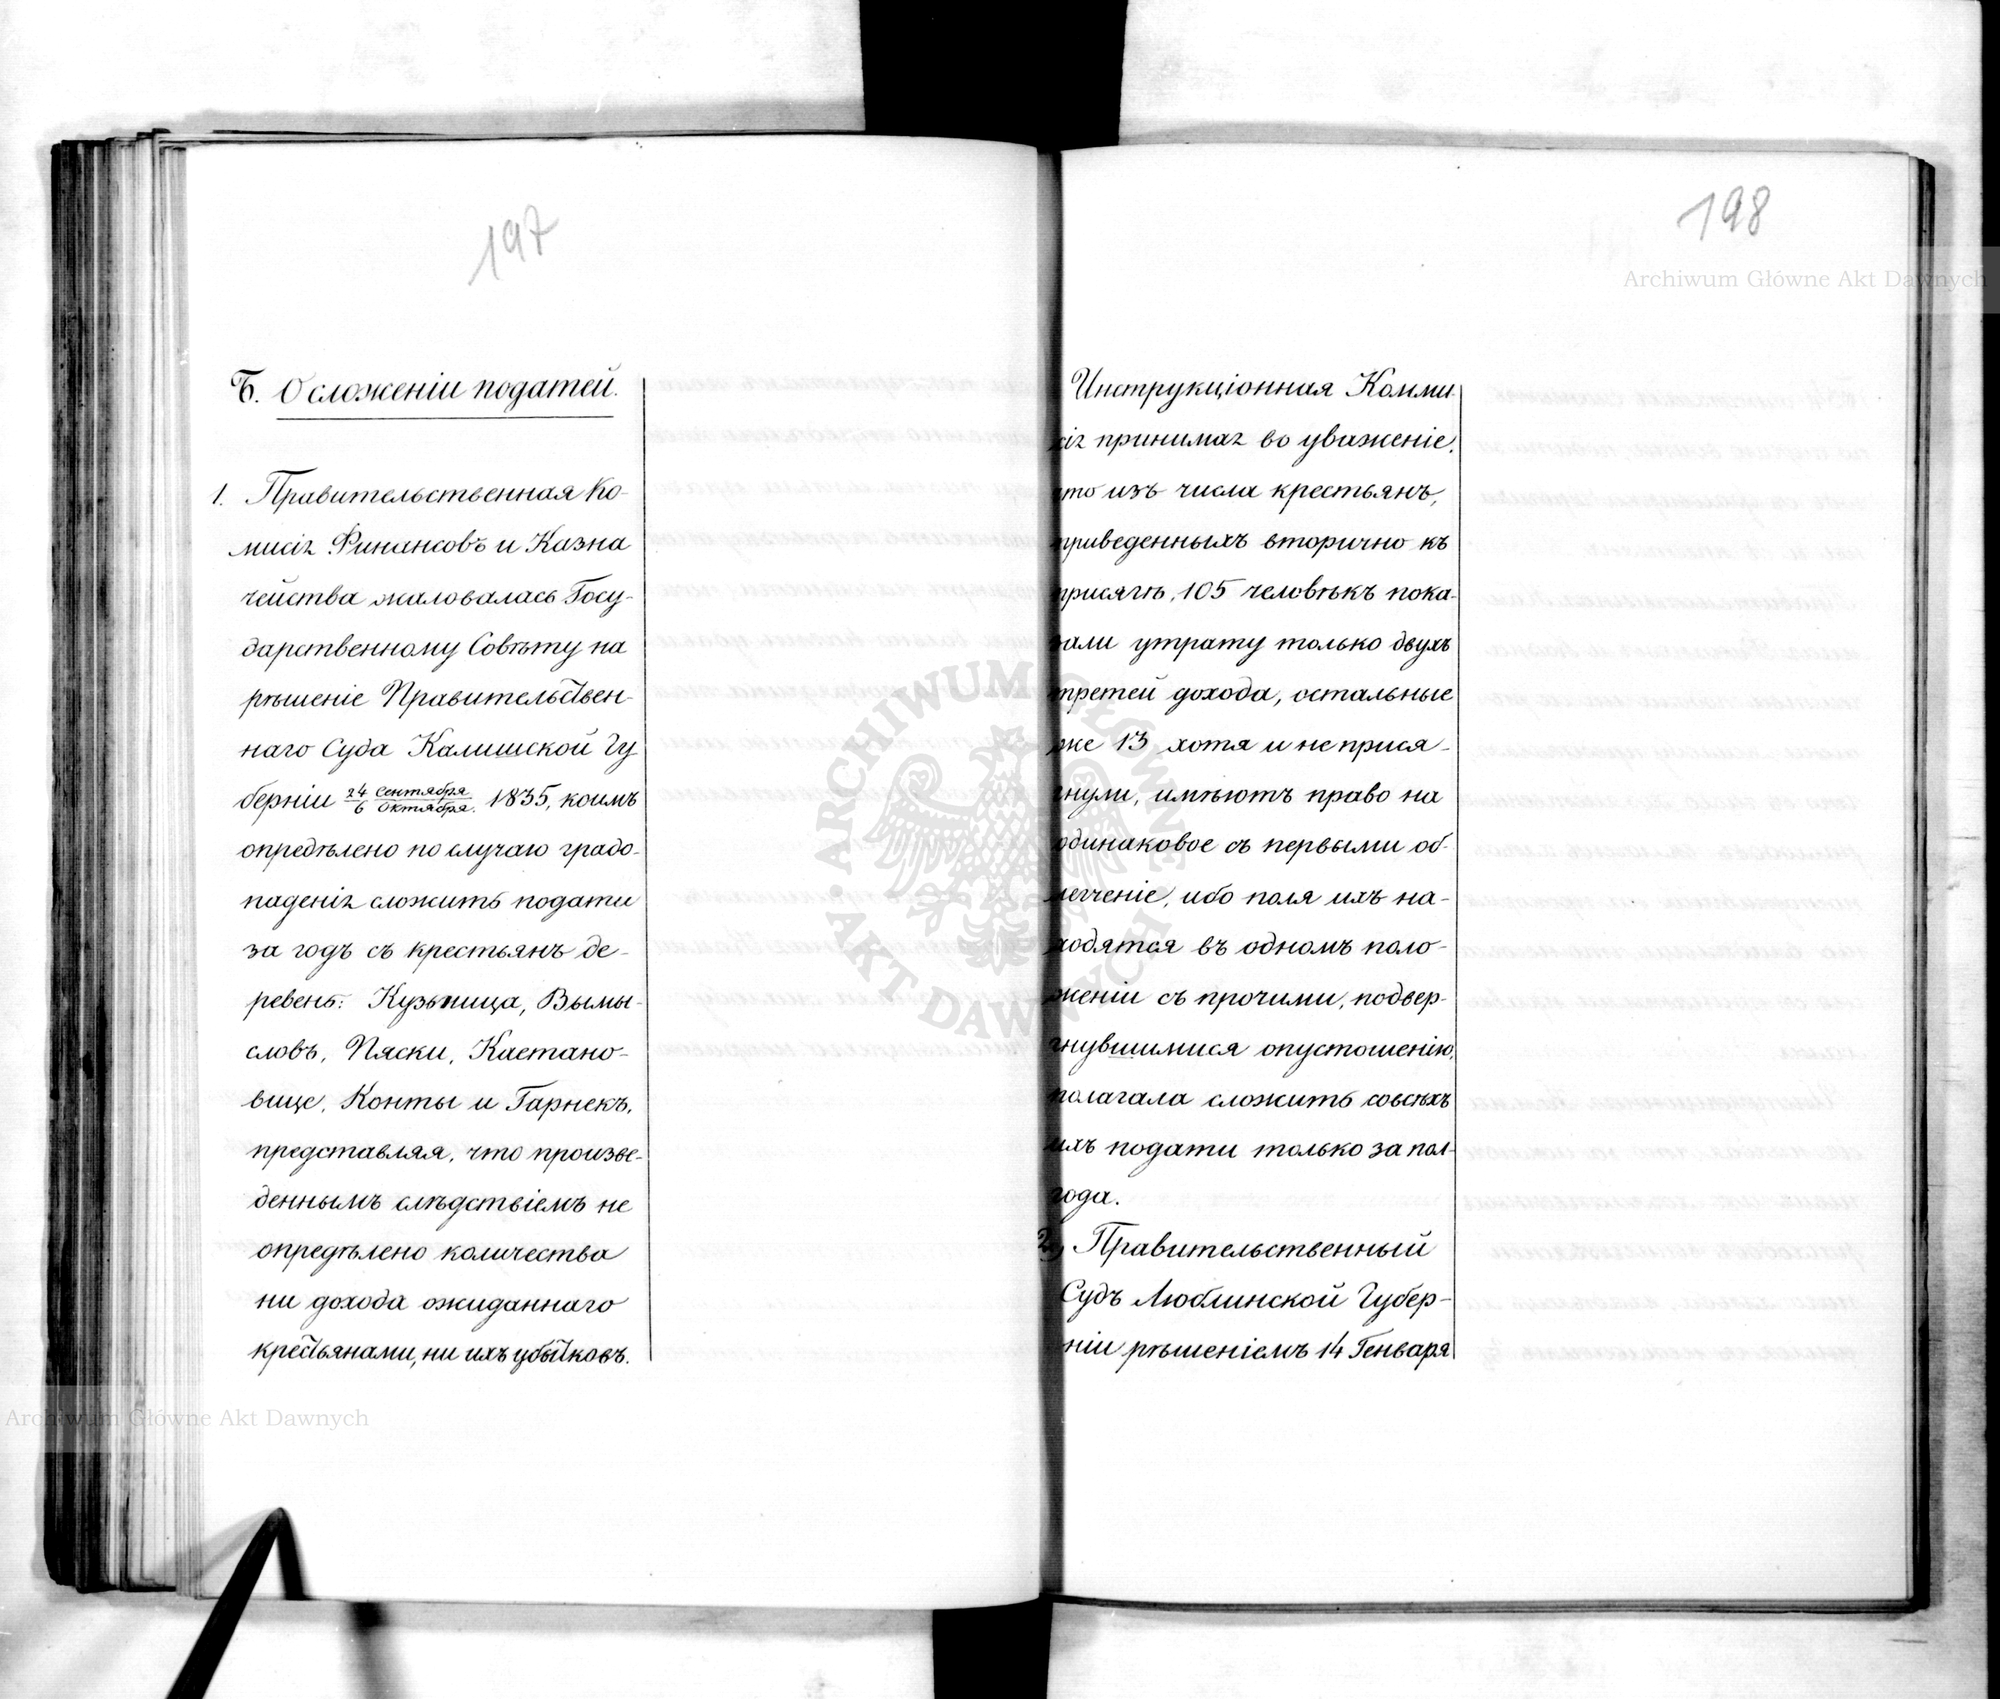 197
Б. О сложеніи податей.
1. Правительственная Ко-
мисія Финансовъ и Казна
чейства жаловалась Госу-
дарственному Совѣту на
рѣшеніе Правительствен-
наго Суда Калишской Гу
берніи 24 Сентября / 6 Октября 1835, коимъ
опредѣлено по случаю градо-
паденія сложить подати
за годъ съ крестьянъ де-
ревень: Кузьница, Вымы-
словъ, Пяски, Каетано-
вице, Конты и Гарнекъ,
представляя, что произве-
деннымъ слѣдствіемъ не
опредѣлено количества
ни дохода ожиданнаго
крестьянами, ни ихъ убытковъ.
198
Инструкціонная Комми-
сія принимая во уваженіе,
что изъ числа крестьянъ,
приведенныхъ вторично къ
присягѣ, 105 человѣкъ пока-
зали утрату только двухъ
третей дохода, остальные
же 13 хотя и не прися-
гнули, имѣютъ право на
одинаковое съ первыми об-
легченіе, ибо поля ихъ на-
ходятся въ одномъ поло-
женіи съ прочими, подвер-
гнувшимися опустошенію,
полагала сложить со всѣхъ
ихъ подати только за пол-
года.
2) Правительственный
Судъ Люблинской Губер-
ніи рѣшеніемъ 14 Генваря
Archiwum Główne Akt Dawnych
ARCHIWUM GŁÓWNE AKT DAWNYCH
Archiwum Główne Akt Dawnych